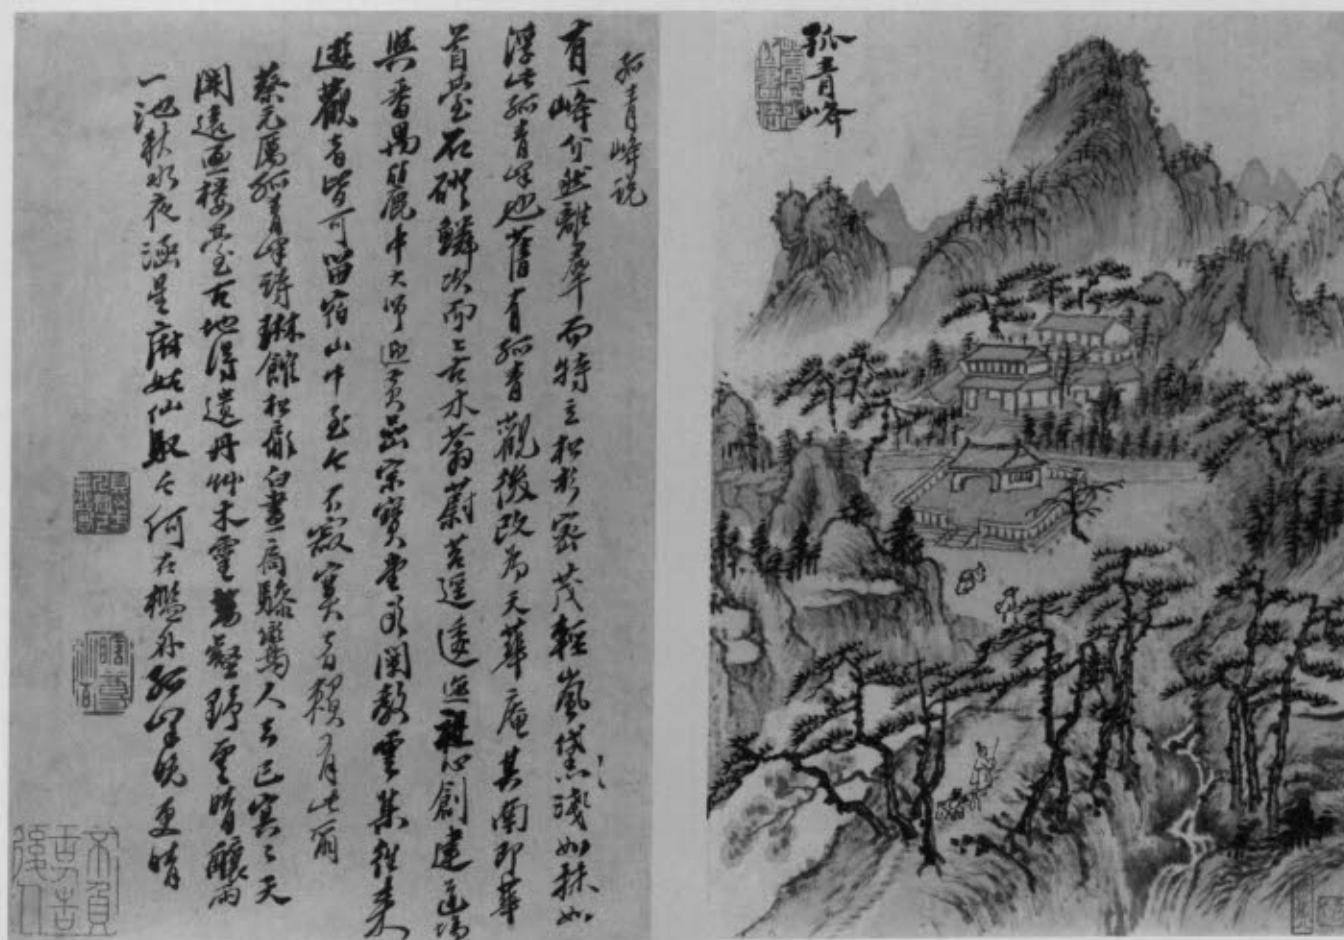 孤青峰
孤青峰說
有一峰介然離羣而特立松杉密茂輕嵐黛淺如抹如
浮此孤青峰也舊有孤青觀後改為天華庵其南即華
首臺石磴鱗次而上古木蓊蔚苔逕逶迤祖心創建道場
與番禺 麗中大師迎 宗寶 開教雲集往来
遊觀者皆可留宿山中至今不寂寞者賴有此爾
蔡元厲孤青峰詩琳館松扉白晝扃驂鸞人去已冥冥天
開遠 樓臺古地得遺丹艸木靈萬壑野雲晴釀雨
一池秋水夜涵星麻姑仙駅今何在檻外孤峰晚更晴